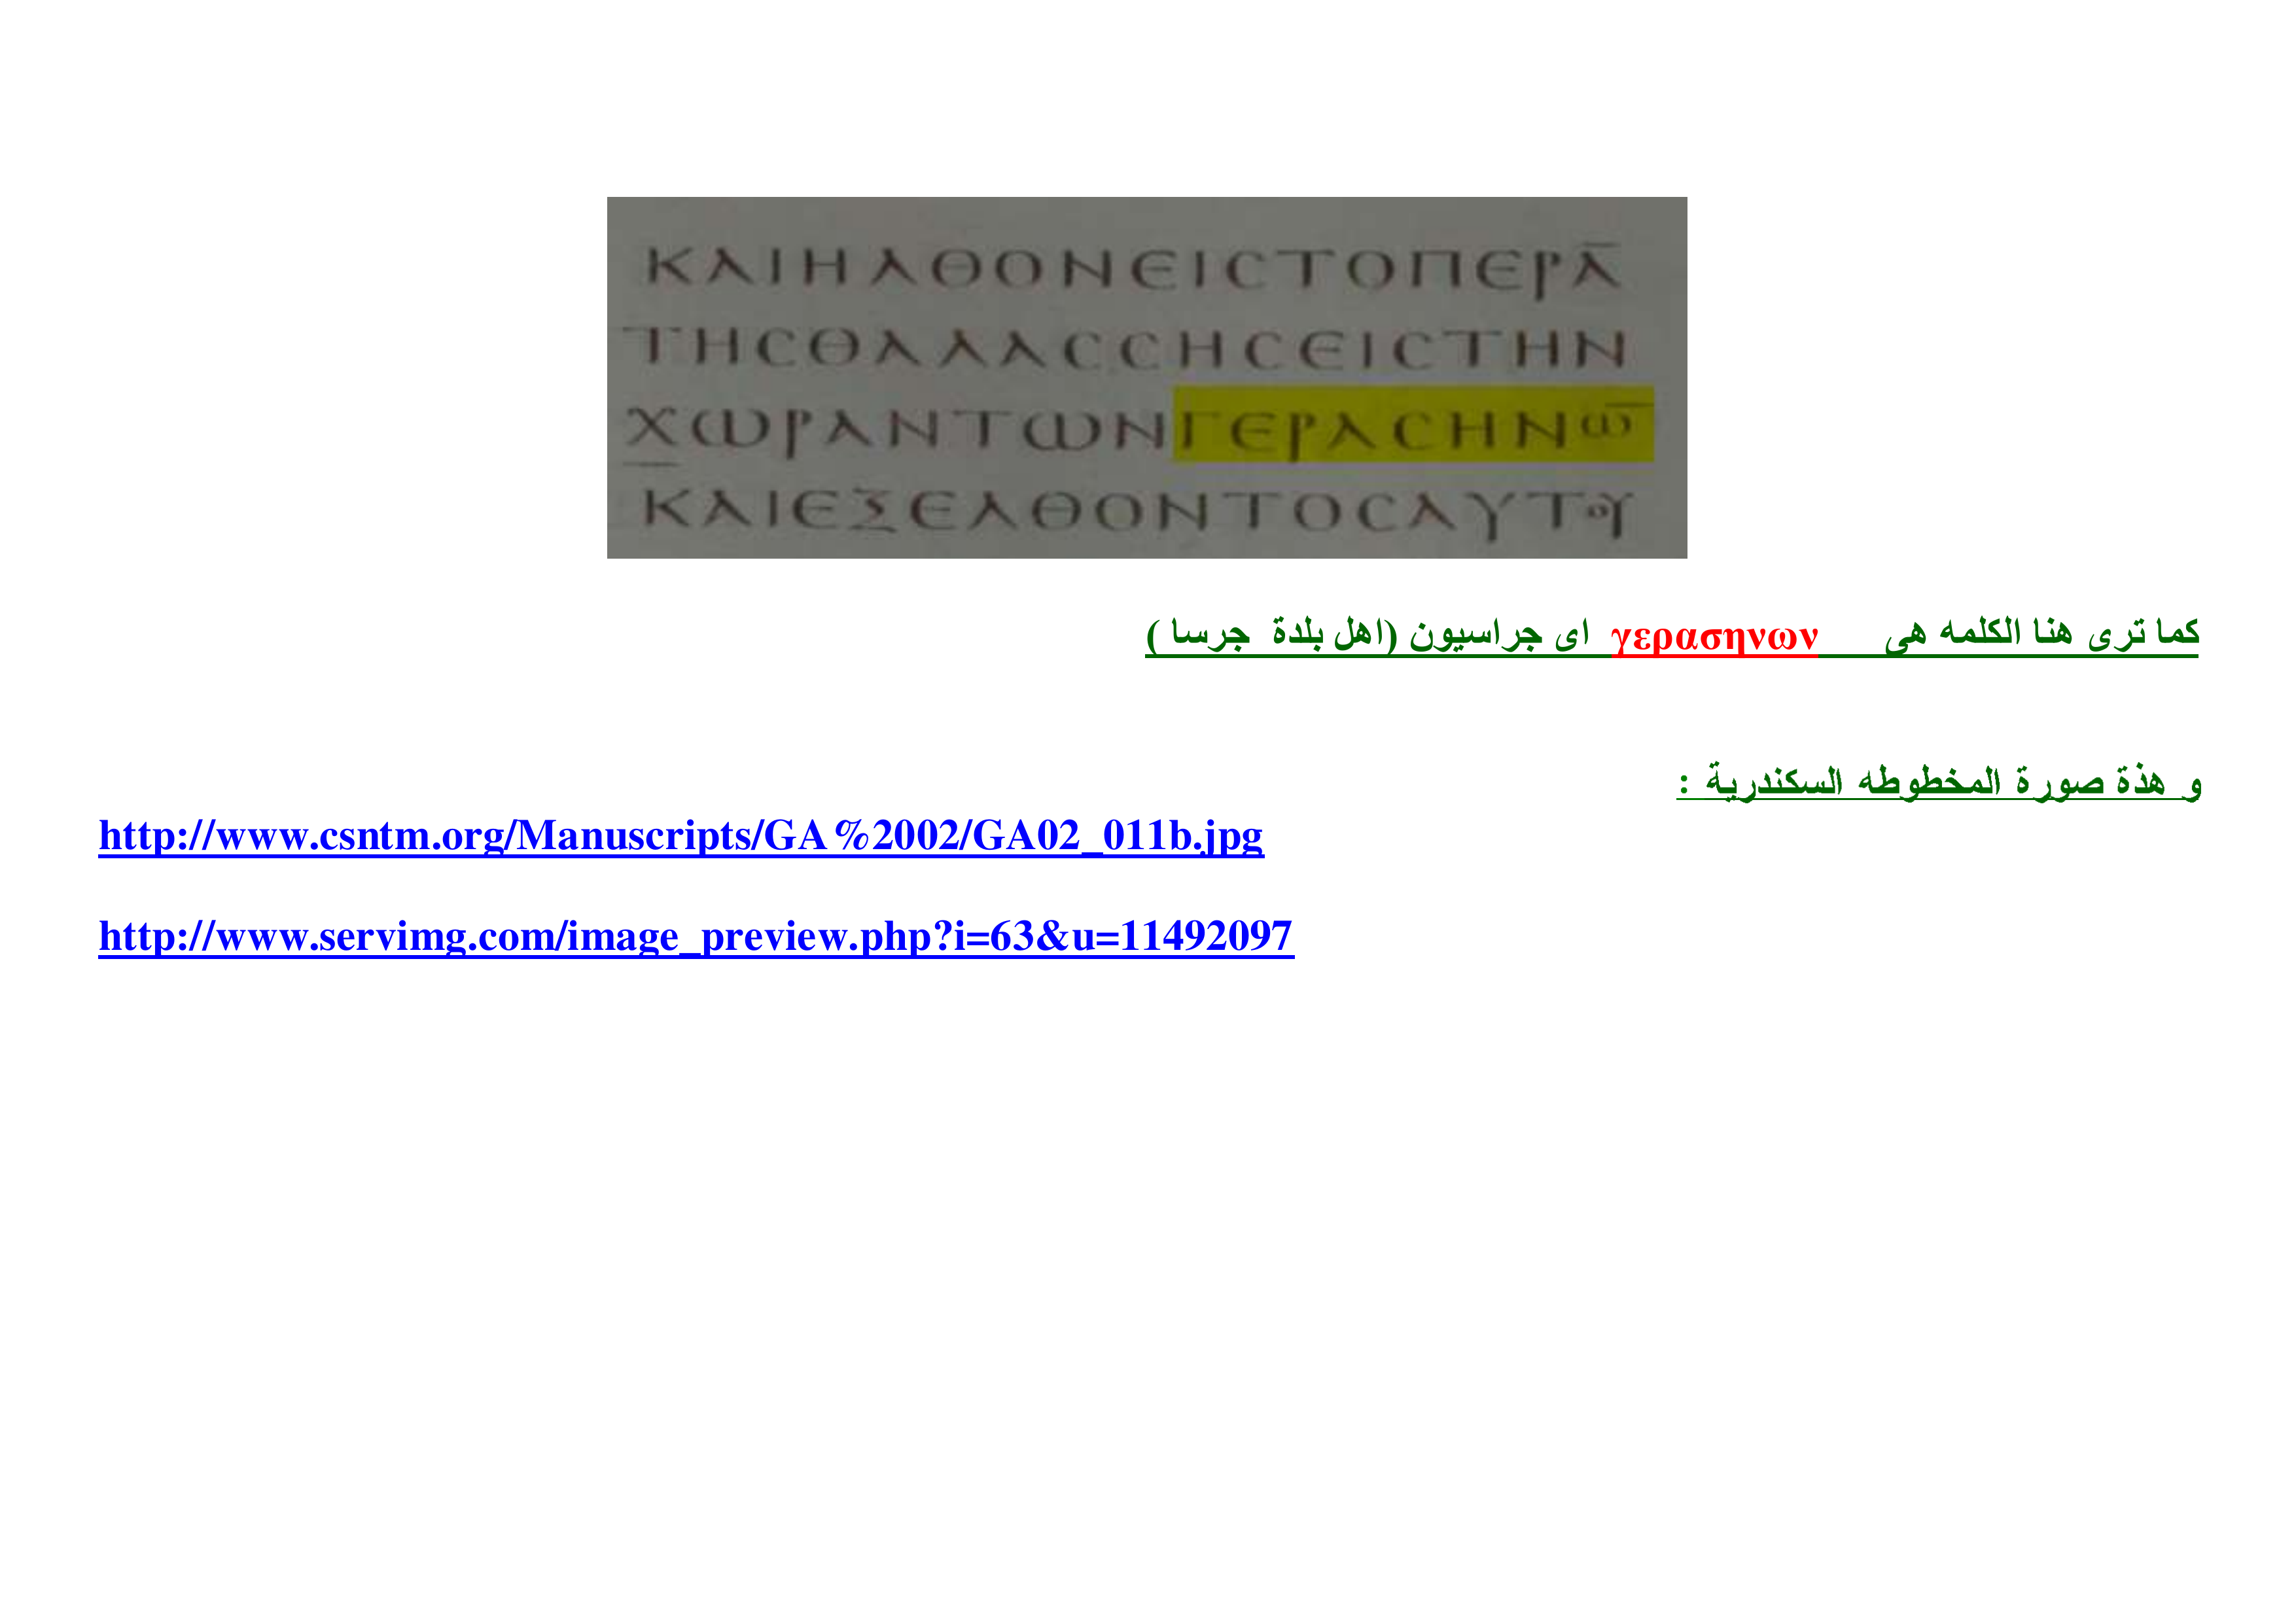 ΚΑΙΗΛΘΟΝΕΙϹΤΟΠΕΡΑ̅
ΤΗϹΘΑΛΑϹϹΗϹΕΙϹΤΗΝ
ΧωΡΑΝΤωΝΓΕΡΑϹΗΝω̅
ΚΑΙΕΞΕΛΘΟΝΤΟϹΑΥΤΟΥ
كما ترى هنا الكلمه هى γερασηνων اى جراسيون (اهل بلدة جرسا )
و هذة صورة المخطوطه السكندرية :
http://www.csntm.org/Manuscripts/GA%2002/GA02_011b.jpg
http://www.servimg.com/image_preview.php?i=63&u=11492097